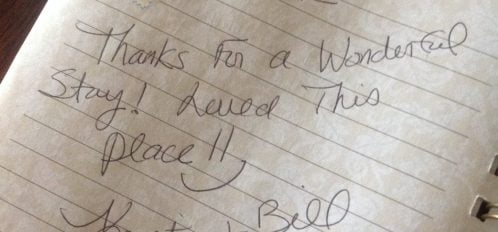 Thanks For a Wonderful
Stay! Loved This
Place!!
Bill